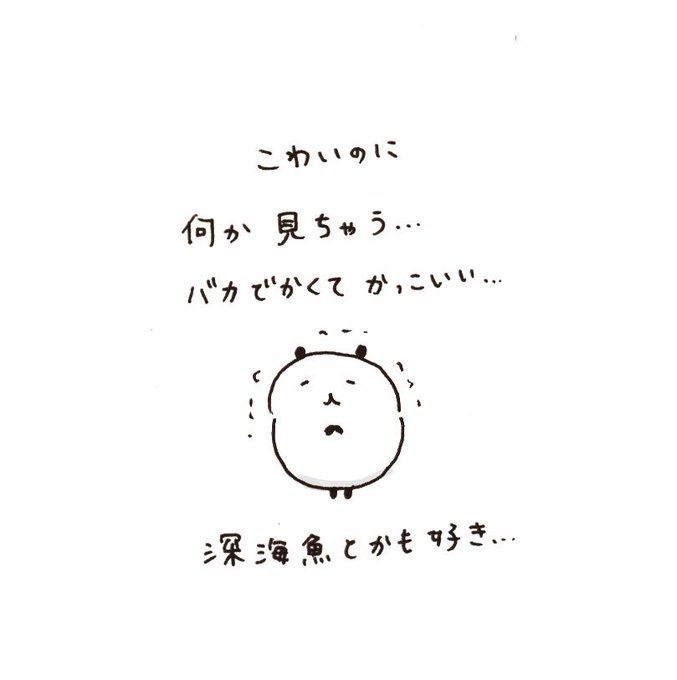 こわいのに
何か 見ちゃう…
バカでかくて かっこいい…
深海魚とかも好き…